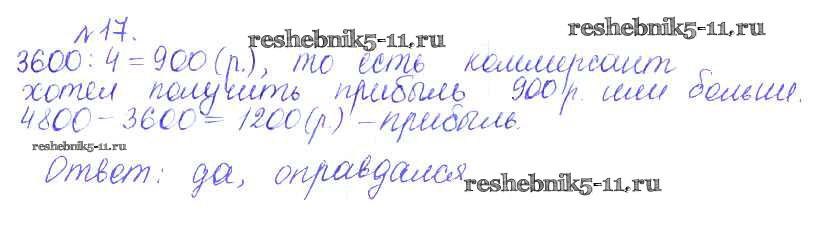 №17. reshebnik5-11.ru reshebnik5-11.ru
3600:4=900(р.), то есть коммерсант
хотел получить прибыль 900р. или больше.
4800-3600=1200(р.) - прибыль.
reshebnik5-11.ru
Ответ: да, оправдался reshebnik5-11.ru